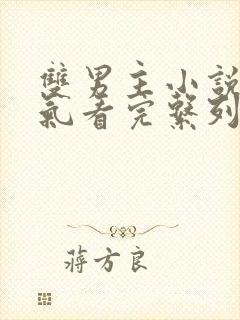 雙男主小說
氣看完繫列
蔣方良